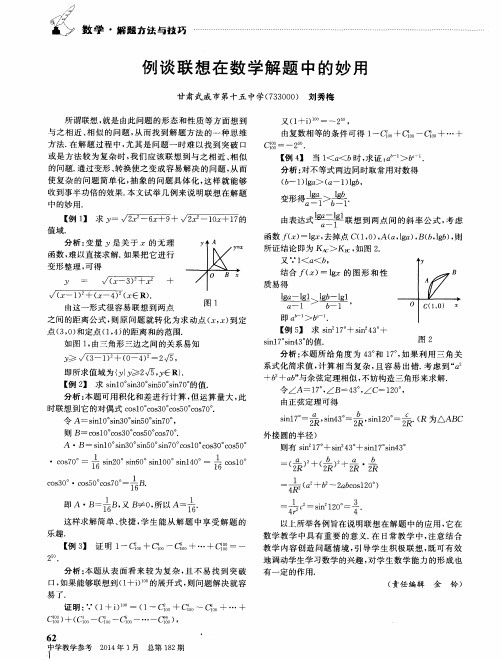 数学·解题方法与技巧
例谈联想在数学解题中的妙用
甘肃武威市第十五中学(733000) 刘秀梅
所谓联想,就是由此问题的形态和性质等方面想到
与之相近、相似的问题,从而找到解题方法的一种思维
方法.在解题过程中,尤其是问题一时难以找到突破口
或是方法较为复杂时,我们应该联想到与之相近、相似
的问题.通过变形、转换使之变成容易解决的问题,从而
使复杂的问题简单化,抽象的问题具体化,这样就能够
收到事半功倍的效果.本文试举几例来说明联想在解题
中的妙用.
【例1】 求 y=√(2x²-6x+9)+√(2x²-10x+17)的
值域.
分析:变量 y 是关于 x 的无理
函数,难以直接求解.如果把它进行
变形整理,可得
y = √((x-3)²+x²) +
√((x-1)²+(x-4)²)(x∈R).
y A y=x O B x
图1
由这一形式很容易联想到两点
之间的距离公式,则原问题就转化为求动点(x,x)到定
点(3,0)和定点(1,4)的距离和的范围.
如图1,由三角形三边之间的关系易知
y≥√((3-1)²+(0-4)²)=2√5,
即所求值域为{y|y≥2√5,y∈R}.
【例2】 求 sin10°sin30°sin50°sin70°的值.
分析:本题可用积化和差进行计算,但运算量大,此
时联想到它的对偶式 cos10°cos30°cos50°cos70°.
令 A=sin10°sin30°sin50°sin70°,
则 B=cos10°cos30°cos50°cos70°.
A·B=sin10°sin30°sin50°sin70°cos10°cos30°cos50°
·cos70°=1/16 sin20°sin60°sin100°sin140°=1/16 cos10°
cos30°·cos50°cos70°=1/16 B.
即 A·B=1/16 B,又 B≠0,所以 A=1/16.
这样求解简单、快捷,学生能从解题中享受解题的
乐趣.
【例3】 证明 1-C²₁₀₀+C⁴₁₀₀-C⁶₁₀₀+…+C¹⁰⁰₁₀₀=-
2⁵⁰.
分析:本题从表面看来较为复杂,且不易找到突破
口,如果能够联想到(1+i)¹⁰⁰的展开式,则问题解决就容
易了.
证明:∵(1+i)¹⁰⁰=(1-C²₁₀₀+C⁴₁₀₀-C⁶₁₀₀+…+
又(1+i)¹⁰⁰=-2⁵⁰,
由复数相等的条件可得 1-C²₁₀₀+C⁴₁₀₀-C⁶₁₀₀+…+
C¹⁰⁰₁₀₀=-2⁵⁰.
【例4】 当 1<a<b时,求证:aᵇ⁻¹>bᵃ⁻¹.
分析:对不等式两边同时取常用对数得
(b-1)lga>(a-1)lgb,
变形得 lga/(a-1)>lgb/(b-1).
由表达式(lga-lg1)/(a-1)联想到两点间的斜率公式,考虑
函数 f(x)=lgx,去掉点 C(1,0),A(a,lga),B(b,lgb),则
所证结论即为 K_AC>K_BC,如图2.
又∵1<a<b,
结合 f(x)=lgx 的图形和性
质易得
(lga-lg1)/(a-1)>(lgb-lg1)/(b-1),
即 aᵇ⁻¹>bᵃ⁻¹.
y A B O C(1,0) x
图2
【例5】 求 sin²17°+sin²43°+
sin17°sin43°的值.
分析:本题所给角度为 43°和 17°,如果利用三角关
系式化简求值,计算相当复杂,且容易出错.考虑到“a²
+b²+ab”与余弦定理相似,不妨构造三角形来求解.
令∠A=17°,∠B=43°,∠C=120°,
由正弦定理可得
sin17°=a/2R,sin43°=b/2R,sin120°=c/2R.(R 为△ABC
外接圆的半径)
则有 sin²17°+sin²43°+sin17°sin43°
=(a/2R)²+(b/2R)²+a/2R·b/2R
=1/4R²(a²+b²-2abcos120°)
=1/4r² c²=sin²120°=3/4.
以上所举各例旨在说明联想在解题中的应用,它在
数学教学中具有重要的意义.在日常教学中,注意结合
教学内容创造问题情境,引导学生积极联想,既可有效
地调动学生学习数学的兴趣,对学生数学能力的形成也
有一定的作用.
(责任编辑 金 铃)
62
中学教学参考 2014年1月 总第182期